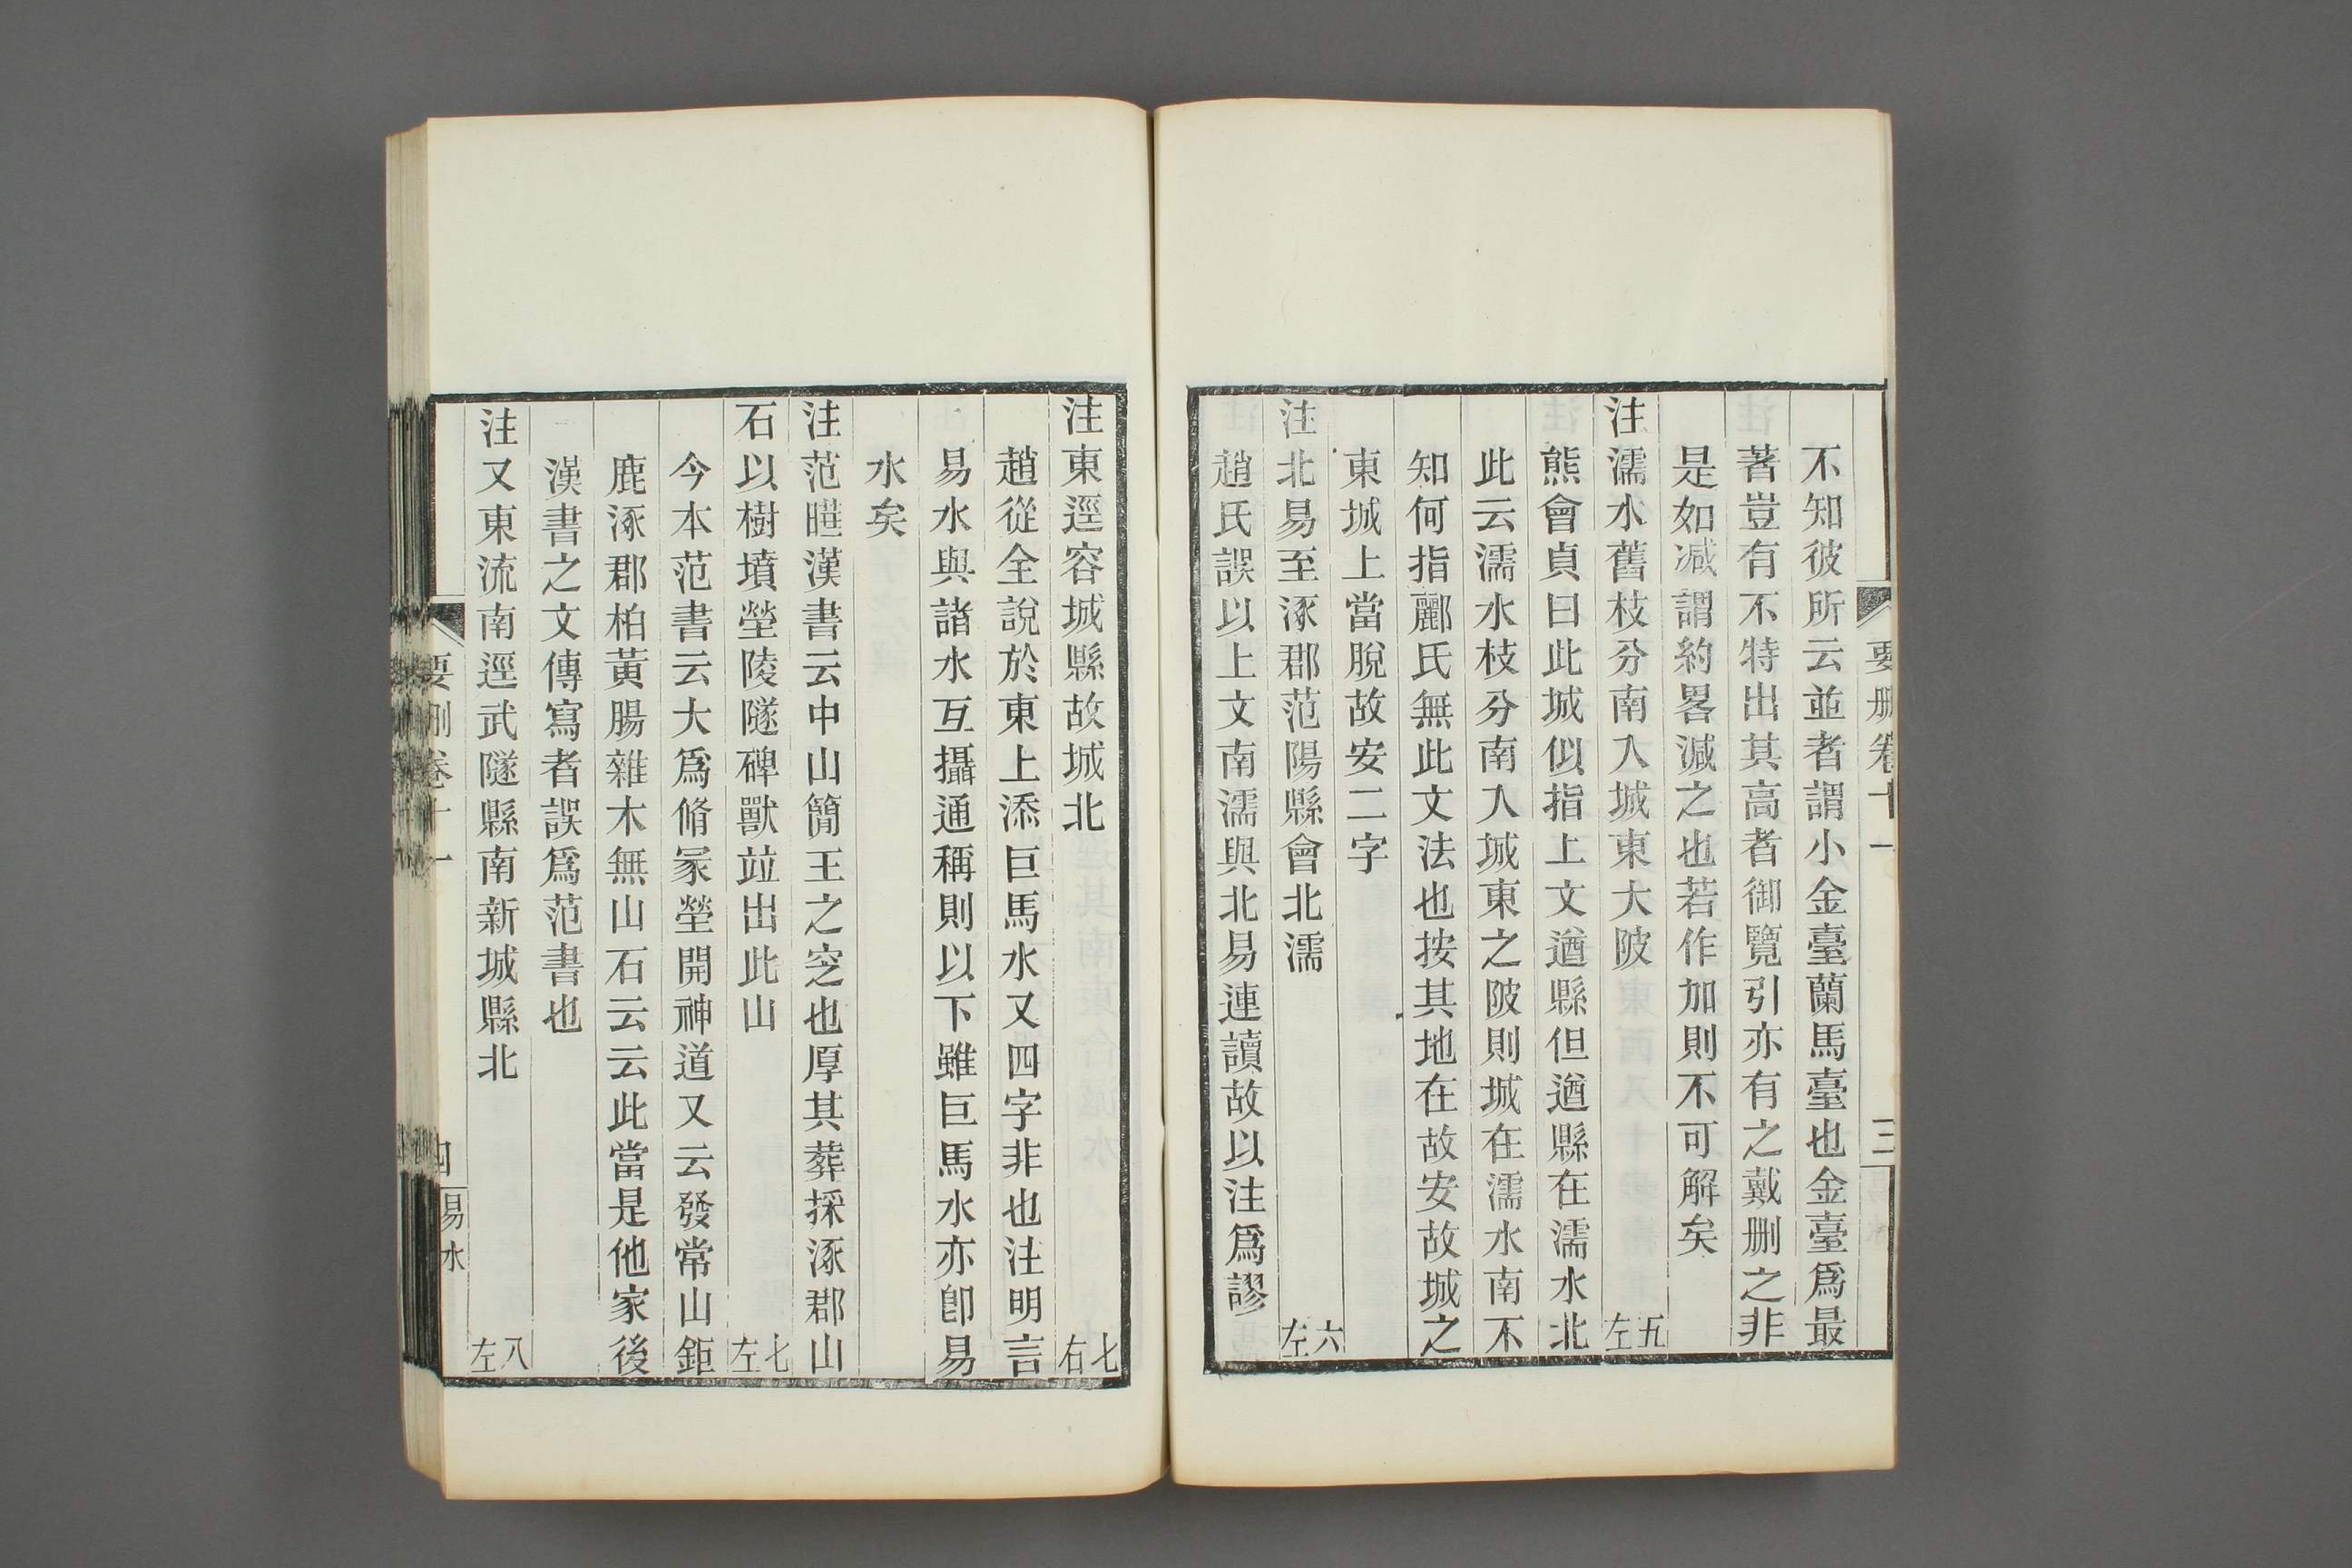 要删卷十一 三
不知彼所云並者謂小金臺蘭馬臺也金臺爲最
著豈有不特出其高者御覽引亦有之戴删之非
是如減謂約畧減之也若作加則不可解矣
注濡水舊枝分南入城東大陂 五左
熊會貞曰此城似指上文遒縣但遒縣在濡水北
此云濡水枝分南入城東之陂則城在濡水南不
知何指酈氏無此文法也按其地在故安故城之
東城上當脫故安二字
注北易至涿郡范陽縣會北濡 六左
趙氏誤以上文南濡與北易連讀故以注爲謬
注東逕容城縣故城北 七右
趙從全說於東上添巨馬水又四字非也注明言
易水與諸水互攝通稱則以下雖巨馬水亦卽易
水矣
注范曄漢書云中山簡王之窆也厚其葬採涿郡山
石以樹墳塋陵隧碑獸竝出此山 七左
今本范書云大爲脩冢塋開神道又云發常山鉅
鹿涿郡柏黃腸雜木無山石云云此當是他家後
漢書之文傳寫者誤爲范書也
注又東流南逕武隧縣南新城縣北 八左
要删卷十一 四 易水